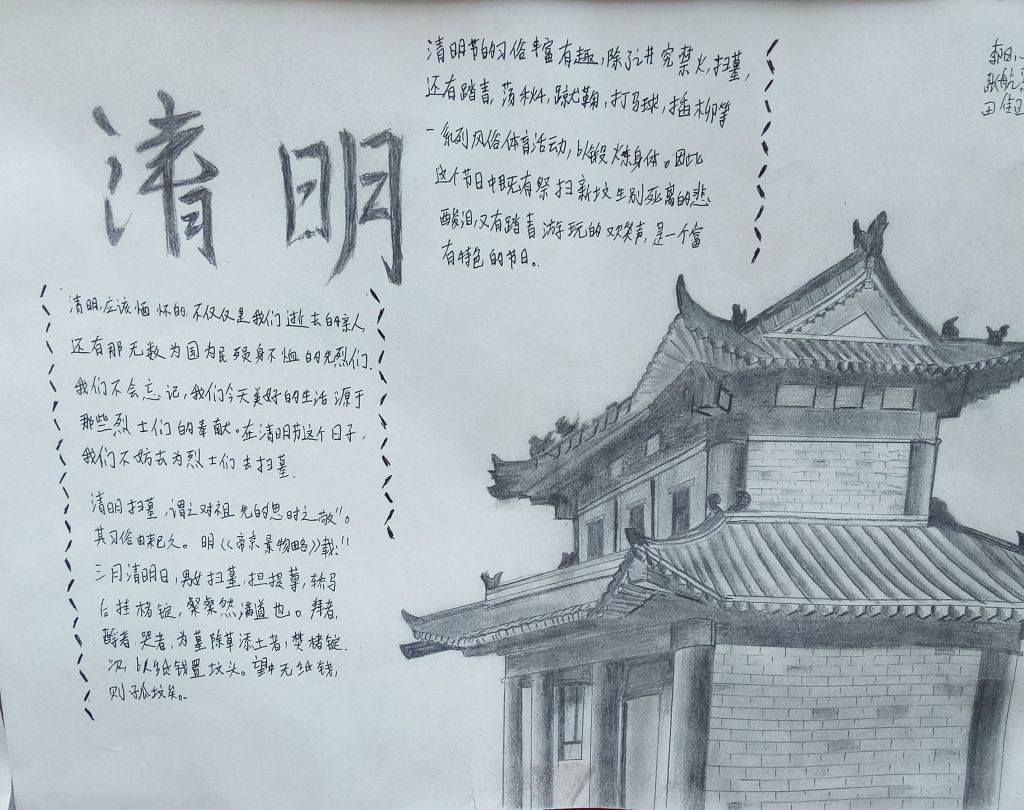 清明
清明节的习俗丰富有趣,除了讲究禁火,扫墓,
还有踏青,荡秋千,蹴鞠,打马球,插柳等
一系列风俗体育活动,以锻炼身体。因此
这个节日中既有祭扫新坟生别死离的悲
酸泪,又有踏青游玩的欢笑声,是一个富
有特色的节日。
清明,应该缅怀的,不仅仅是我们逝去的亲人,
还有那无数为国为民殒身不恤的先烈们.
我们不会忘记,我们今天美好的生活源于
那些烈士们的奉献。在清明节这个日子,
我们不妨去为烈士们去扫墓.
清明扫墓,谓之对祖先的思时之敬”。
其习俗由来已久。明《《帝京景物略》》载:“
三月清明日,男女扫墓,担提尊,轿马
后挂楮锭,粲粲然满道也。拜者,
酹者,哭者,为墓除草添土者,焚楮锭
次,以纸钱置坟头。望中无纸钱,
则孤坟矣。